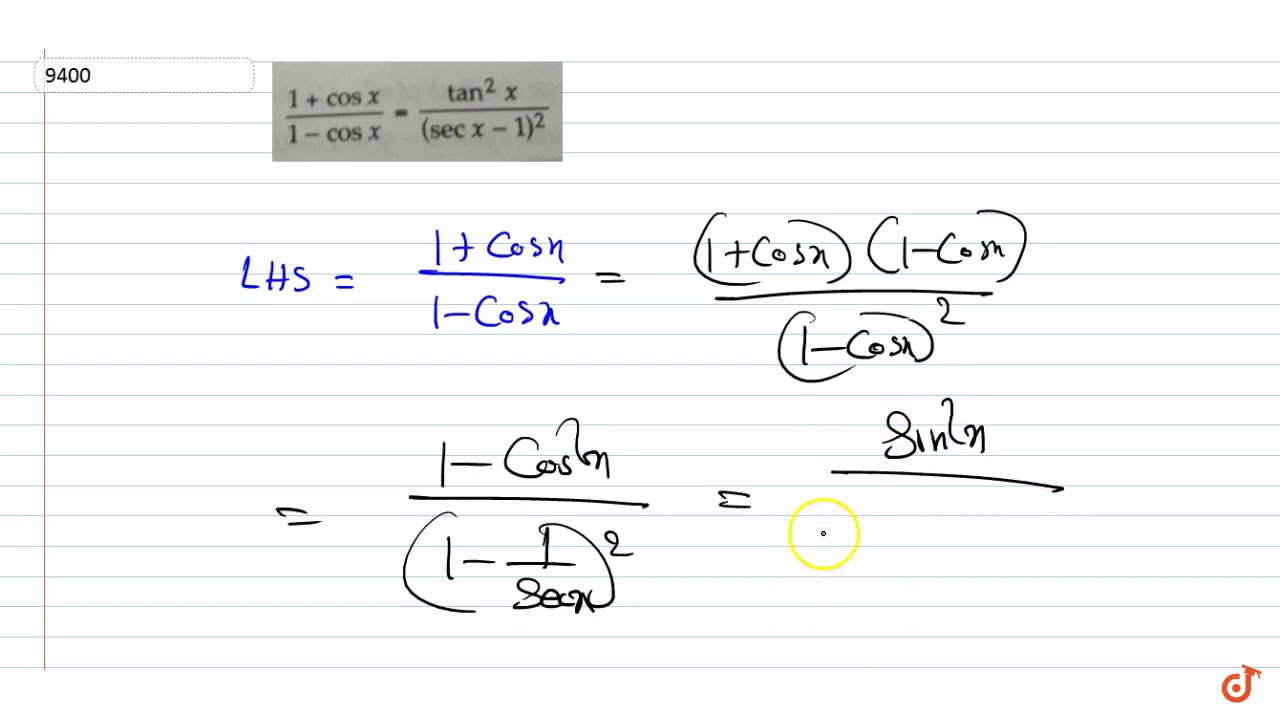 9400
(1 + cos x)/(1 − cos x) = tan² x/(sec x − 1)²
LHS = (1 + Cosx)/(1 − Cosx) = (1 + Cosx)(1 − Cosx)/(1 − Cosx)²
= (1 − Cos²x)/(1 − 1/Secx)² = Sin²x